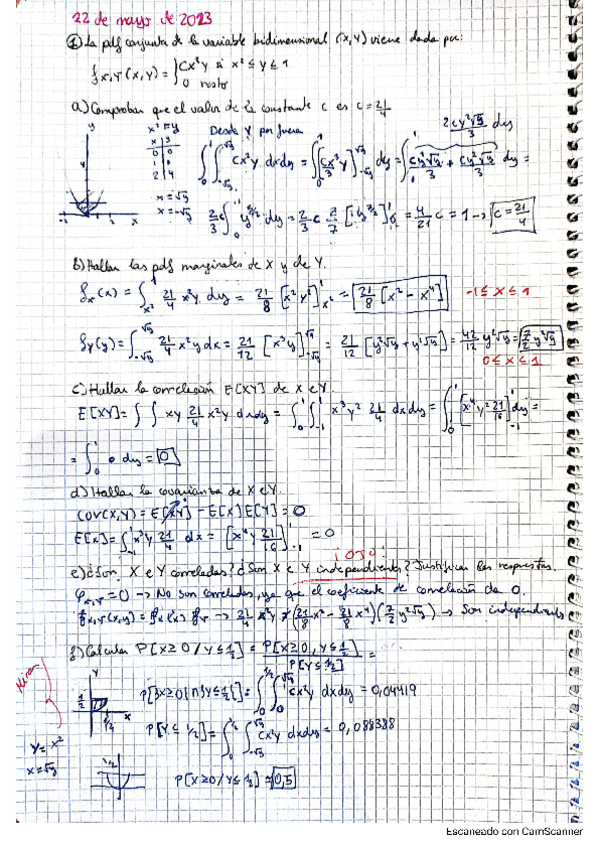 22 de mayo de 2023
① La pdf conjunta de la variable bidimensional (X,Y) viene dada por:
f_{X,Y}(x,y) = { Cx²y si x² ≤ y ≤ 1
0 resto
a) Comprobar que el valor de la constante c es c = 21/4
y
x² = y
x | y
0 | 0
2 | 4
x = √y
x = -√y
-1 1 x
Desde Y por fuera
∫₀¹ ∫_{-√y}^{√y} cx²y dxdy = ∫₀¹ [cx³y/3]_{-√y}^{√y} dy = ∫₀¹ cy²√y/3 + cy²√y/3 dy =
2cy²√y/3 dy
2/3 c ∫₀¹ y^{5/2} dy = 2/3 c 2/7 [y^{7/2}]₀¹ = 4/21 c = 1 → c = 21/4
b) Hallar las pdf marginales de X y de Y.
f_x(x) = ∫_{x²}^1 21/4 x²y dy = 21/8 [x²y²]_{x²}^1 = 21/8 [x² - x⁶] -1 ≤ x ≤ 1
f_Y(y) = ∫_{-√y}^{√y} 21/4 x²y dx = 21/12 [x³y]_{-√y}^{√y} = 21/12 [y²√y + y²√y] = 42/12 y²√y = 7/2 y²√y
0 ≤ x ≤ 1
c) Hallar la correlación E[XY] de X e Y.
E[XY] = ∫ ∫ xy 21/4 x²y dxdy = ∫₀¹ ∫₋₁¹ x³y² 21/4 dxdy = ∫₀¹ [x⁴y² 21/16]₋₁¹ dy =
= ∫₀¹ 0 dy = 0
d) Hallar la covarianza de X e Y.
COV(X,Y) = E[XY] - E[X]E[Y] = 0
E[X] = ∫₋₁¹ x³y 21/4 dx = [x⁴y 21/16]₋₁¹ = 0
¡OJO!
e) ¿Son X e Y correladas? ¿Son X e Y independientes? Justificar las respuestas.
ρ_{X,Y} = 0 → No son correladas, ya que el coeficiente de correlación da 0.
f_{X,Y}(x,y) = f_x(x) f_Y → 21/4 x²y ≠ (21/8 x² - 21/8 x⁶)(7/2 y²√y) → Son independientes
f) Calcular P[X≥0 / Y≤1/2] = P[X≥0, Y≤1/2] / P[Y≤1/2] =
Mirar
Y
1/2
x
P[{X≥0} ∩ {Y≤1/2}] = ∫₀^{1/2} ∫₀^{√y} cx²y dxdy = 0,04419
P[Y≤1/2] = ∫₀^{1/2} ∫_{-√y}^{√y} cx²y dxdy = 0,088388
y = x²
x = √y
1/2
P[X≥0 / Y≤1/2] = 0,5
Escaneado con CamScanner